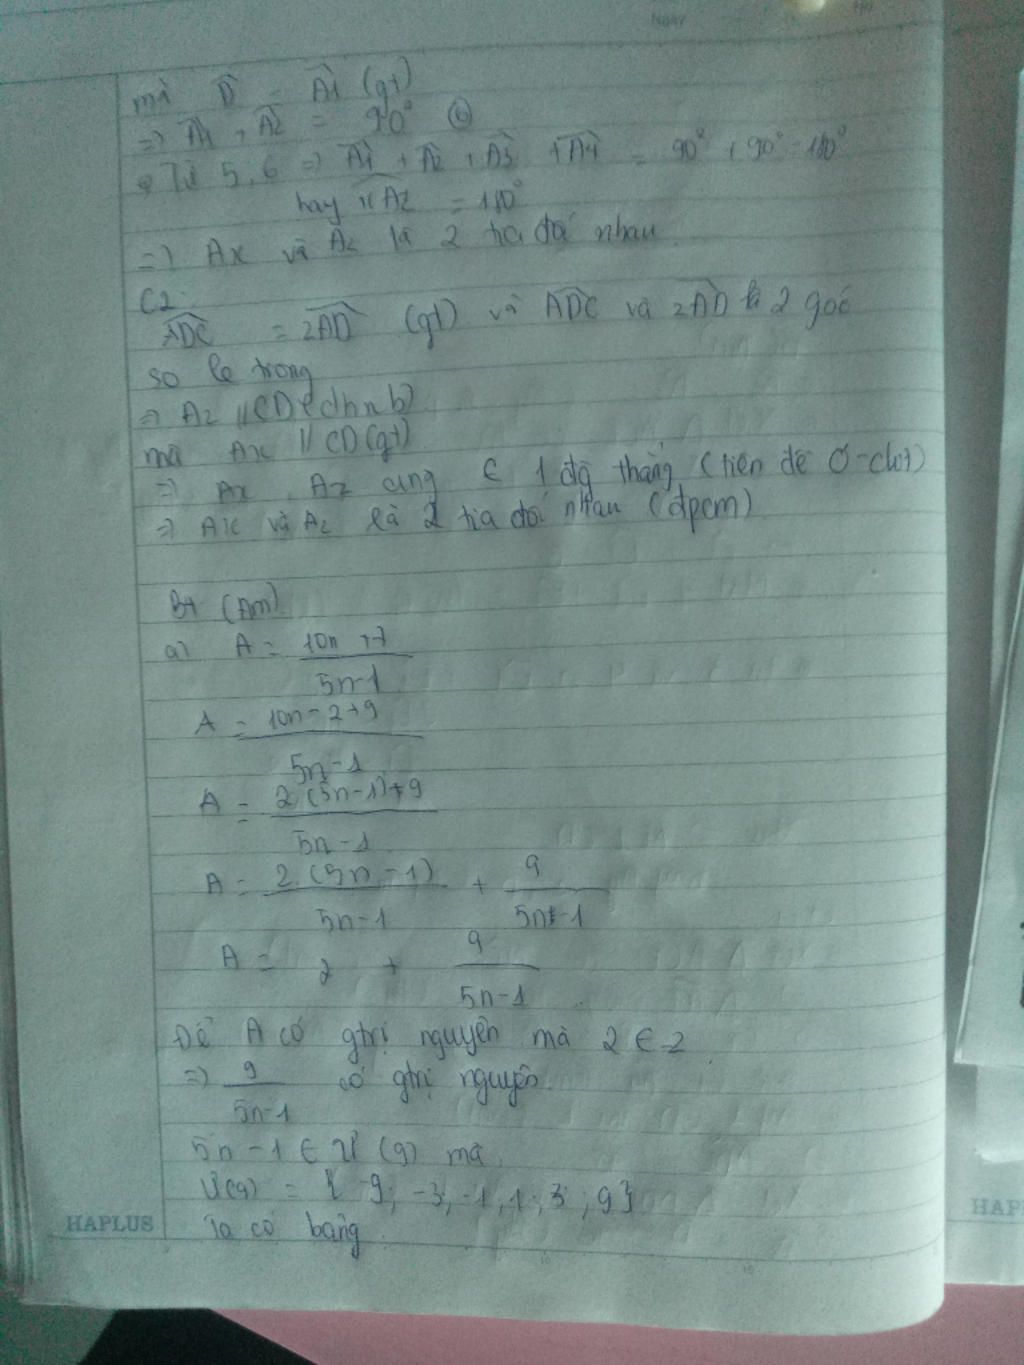 Ngày
mà D̂ = Â1 (gt)
=> Â1 + Â2 = 90° ⑥
Từ 5, 6 => Â1 + Â2 + Â3 + Â4 = 90° + 90° = 180°
hay xAz = 180°
=> Ax và Az là 2 tia đối nhau
C2:
ADC = zAD (gt) và ADC và zAD là 2 góc
so le trong
=> Az // CD (dhnb)
mà Ax // CD (gt)
=> Ax, Az cùng ∈ 1 đg thẳng (tiên đề Ơ-clit)
=> Ax và Az là 2 tia đối nhau (đpcm)
a) A = 10n + 7 / 5n - 1
A = 10n - 2 + 9 / 5n - 1
A = 2(5n - 1) + 9 / 5n - 1
A = 2(5n - 1) / 5n - 1 + 9 / 5n - 1
A = 2 + 9 / 5n - 1
Để A có gtrị nguyên mà 2 ∈ Z
=> 9 / 5n - 1 có gtrị nguyên
5n - 1 ∈ Ư(9) mà
Ư(9) = { -9; -3; -1; 1; 3; 9 }
Ta có bảng
HAPLUS
HAP